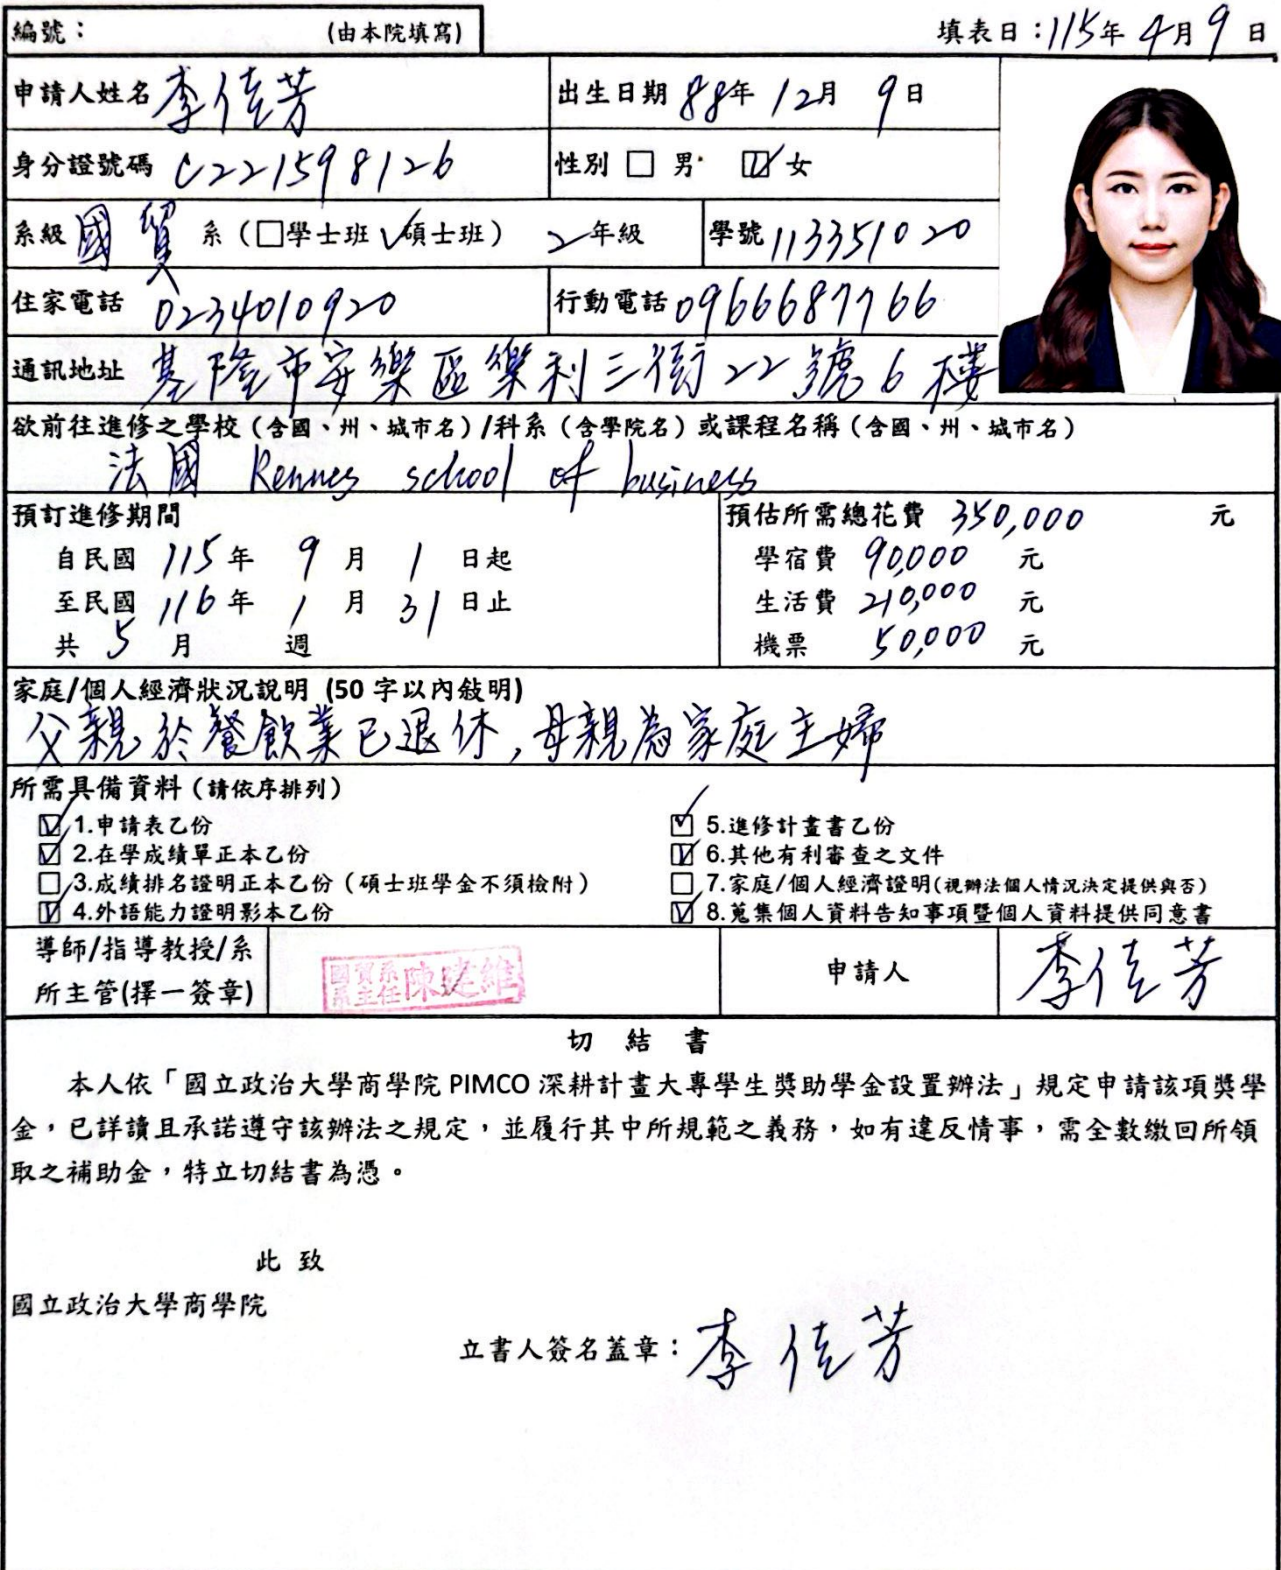 編號： (由本院填寫) 填表日：115年 4月 9 日
申請人姓名 李佳芳 出生日期 88年 12月 9日
身分證號碼 C221598126 性別 □ 男 ☑ 女
系級 國貿 系（□學士班 ✓碩士班） 2年級 學號 113351020
住家電話 0234010920 行動電話 0966687766
通訊地址 基隆市安樂區樂利三街22號6樓
欲前往進修之學校（含國、州、城市名）/科系（含學院名）或課程名稱（含國、州、城市名）
法國 Rennes school of business
預訂進修期間 預估所需總花費 350,000 元
自民國 115年 9月 1 日起 學宿費 90,000 元
至民國 116年 1月 31日止 生活費 210,000 元
共 5 月 週 機票 50,000 元
家庭/個人經濟狀況說明 (50 字以內敍明)
父親於餐飲業已退休，母親為家庭主婦
所需具備資料（請依序排列）
☑ 1.申請表乙份 ☑ 5.進修計畫書乙份
☑ 2.在學成績單正本乙份 ☑ 6.其他有利審查之文件
□ 3.成績排名證明正本乙份（碩士班學金不須檢附） □ 7.家庭/個人經濟證明(視辦法個人情況決定提供與否)
☑ 4.外語能力證明影本乙份 ☑ 8.蒐集個人資料告知事項暨個人資料提供同意書
導師/指導教授/系
所主管(擇一簽章) 國貿系系主任陳建維 申請人 李佳芳
切 結 書
本人依「國立政治大學商學院 PIMCO 深耕計畫大專學生獎助學金設置辦法」規定申請該項獎學
金，已詳讀且承諾遵守該辦法之規定，並履行其中所規範之義務，如有違反情事，需全數繳回所領
取之補助金，特立切結書為憑。
此 致
國立政治大學商學院
立書人簽名蓋章：李佳芳